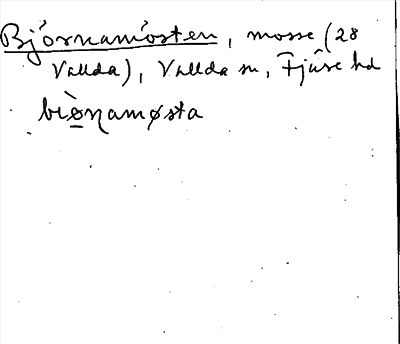 Björnamosten, mosse (28
Vallda), Vallda sn, Fjäre hd
biò̱ŋamøsta